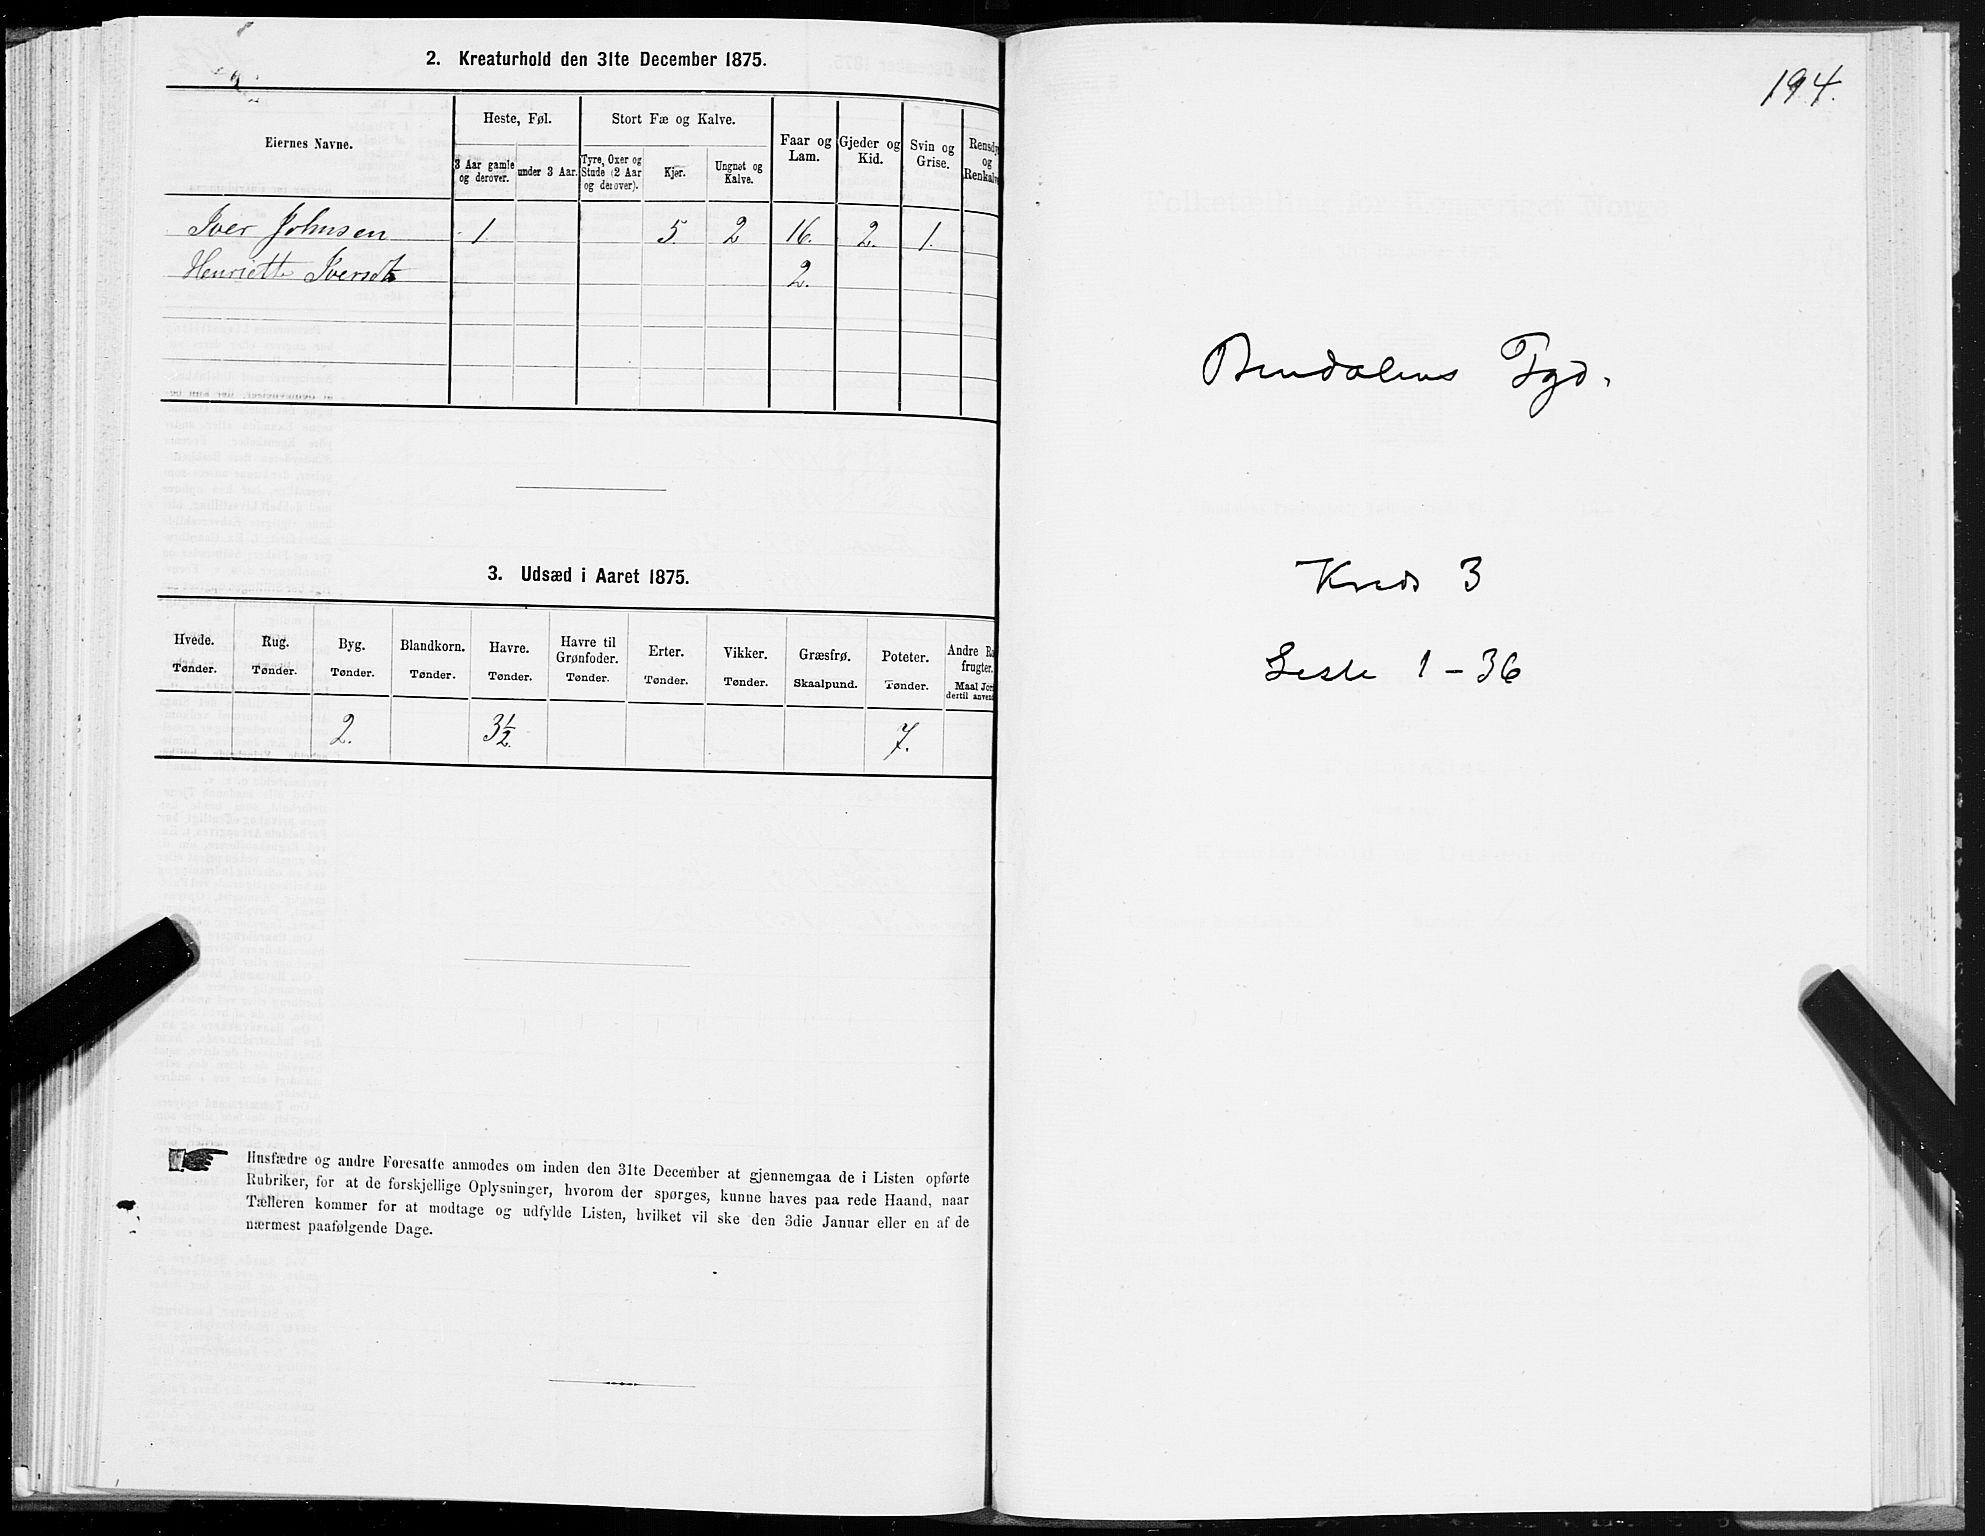 2. Kreaturhold den 31te December 1875.
Eiernes Navne.
Heste, Føl.
Stort Fæ og Kalve.
Faar og Lam.
Gjeder og Kid.
Svin og Grise.
Rensdy
og
Renkalve
3 Aar gamle og derover.
under 3 Aar.
Tyre, Oxer og Stude (2 Aar og derover).
Kjør.
Ungnøt og Kalve.
Iver Johnsen 1. 5. 2 16. 2. 1.
Henriette Iversdt 2.
3. Udsæd i Aaret 1875.
Hvede. Rug. Byg. Blandkorn. Havre. Havre til Grønfoder. Erter. Vikker. Græsfrø. Poteter. Andre Ro
frugter.
Tønder. Tønder. Tønder. Tønder. Tønder. Tønder. Tønder. Tønder. Skaalpund. Tønder. Maal Jor
dertil anvend
2. 3½. 7.
Husfædre og andre Foresatte anmodes om inden den 31te December at gjennemgaa de i Listen opførte
Rubriker, for at de forskjellige Oplysninger, hvorom der spørges, kunne haves paa rede Haand, naar
Tælleren kommer for at modtage og udfylde Listen, hvilket vil ske den 3die Januar eller en af de
nærmest paafølgende Dage.
194.
Bindalens Fgd.
Kreds 3
Liste 1-36